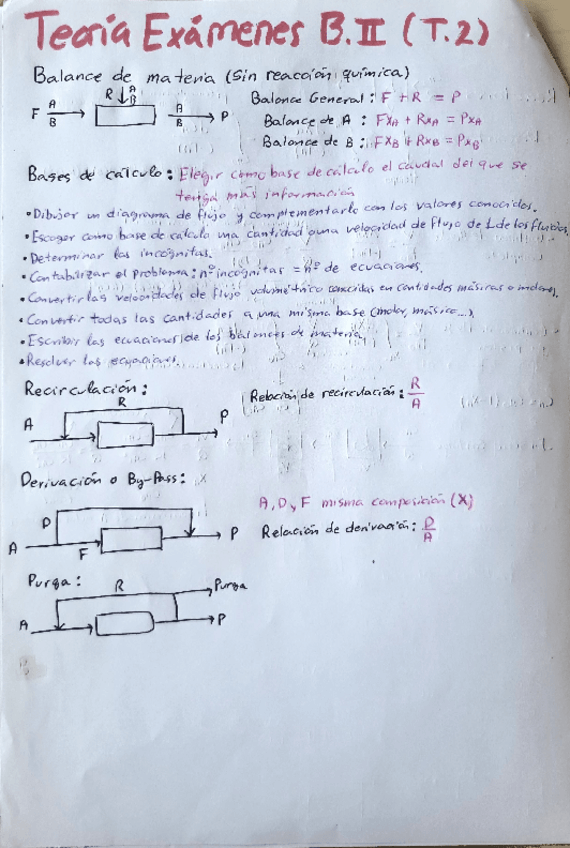 Teoría Exámenes B.II (T.2)
Balance de materia (Sin reacción química)
F A B R A B A B P
Balance General: F + R = P
Balance de A: FxA + RxA = PxA
Balance de B: FxB + RxB = PxB
Bases de cálculo: Elegir como base de cálculo el caudal del que se
tenga más información
• Dibujar un diagrama de flujo y complementarlo con los valores conocidos.
• Escoger como base de calculo una cantidad o una velocidad de flujo de 1 de los fluidos.
• Determinar las incógnitas.
• Contabilizar el problema: nº incógnitas = nº de ecuaciones.
• Convertir las velocidades de flujo volumétrico conocidas en cantidades másicas o molares.
• Convertir todas las cantidades a una misma base (molar, másica...)
• Escribir las ecuaciones de los balances de materia
• Resolver las ecuaciones.
Recirculación:
A R P
Relación de recirculación: R/A
Derivación o By-Pass:
A D F P
A, D, F misma composición (X)
Relación de derivación: D/A
Purga:
A R Purga P